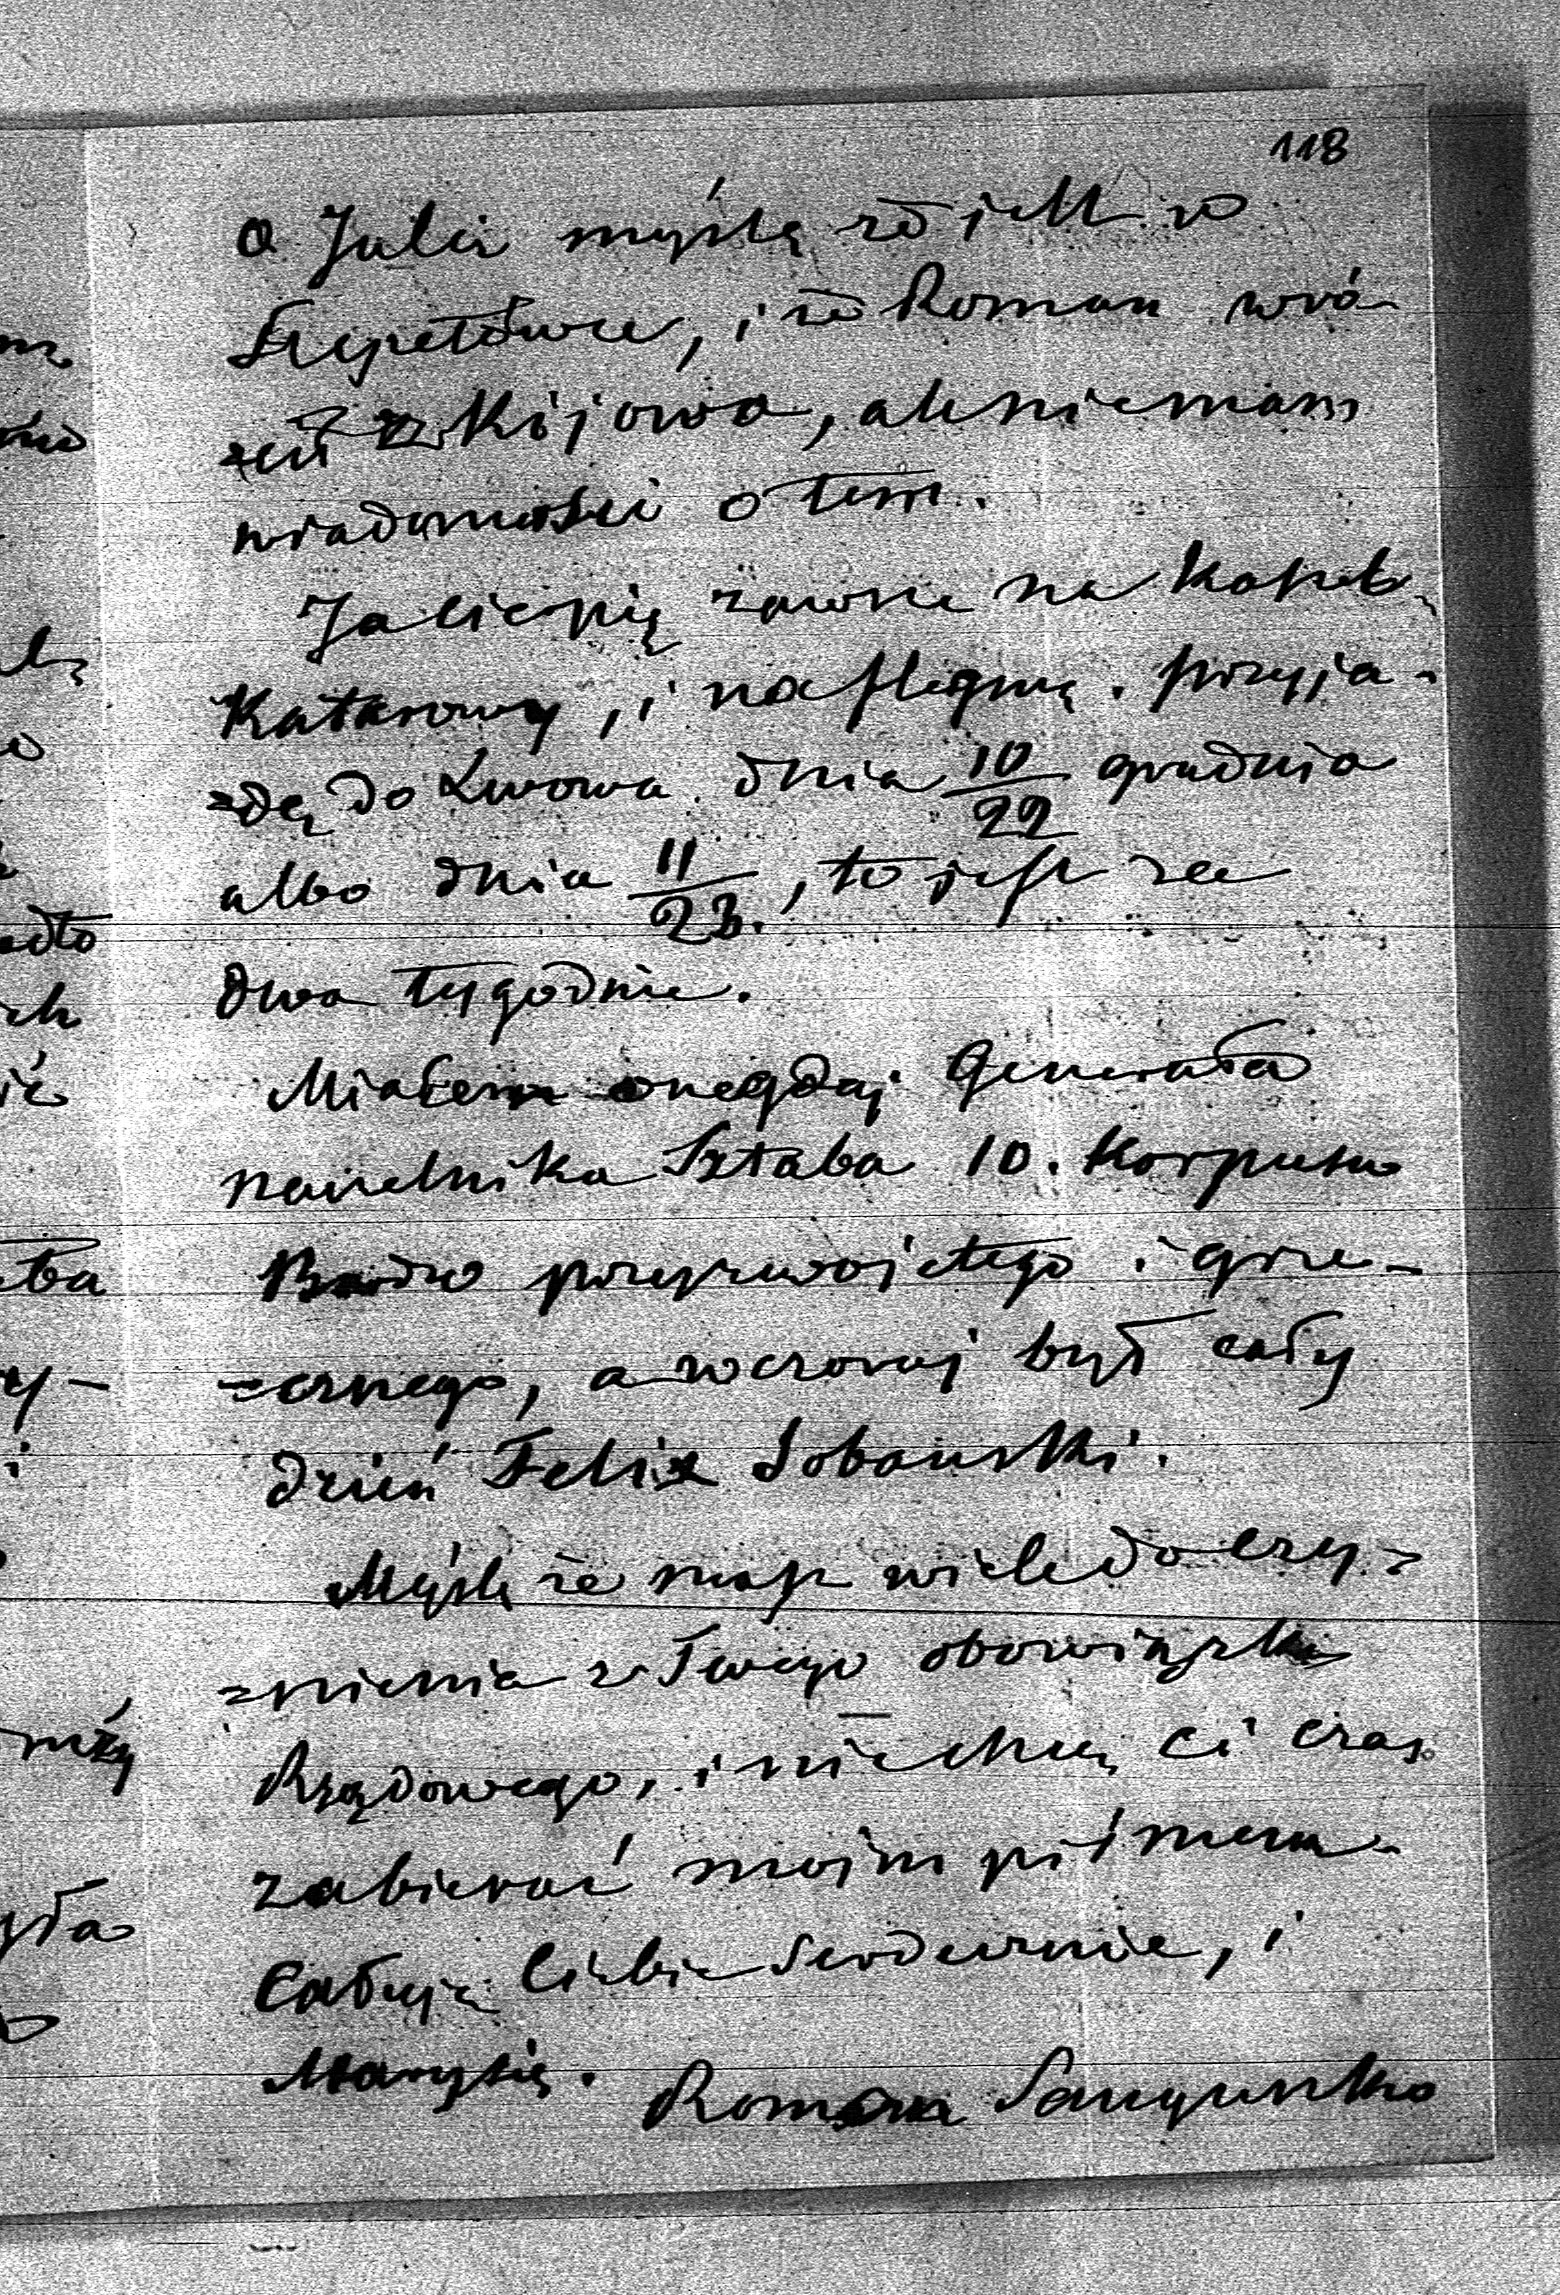 118
O Julci myślę że jest w
Szepetówce, i że Roman wró-
cił z Kijowa, ale niemam
wiadomości o tem.
Ja cierpię zawsze na kaszel
Katarowy, i na flegmę. przyja-
=dę do Lwowa dnia 10/22 grudnia
albo dnia 11/23., to jest za
dwa tygodnie.
Miałem onegdaj Generała
naczelnika Sztaba 10. Korpusu
Bardzo przyzwojetego i grze-
=cznego, a wczoraj był cały
dzień Felix Sobanski.
Myślę że masz wiele do czy=
=nienia z Twego obowiązku
Rządowego, i niechcę Ci czas
zabierać mojem pismem.
Całuję Ciebie Serdecznie, i
Marysię. Roman Sanguszko